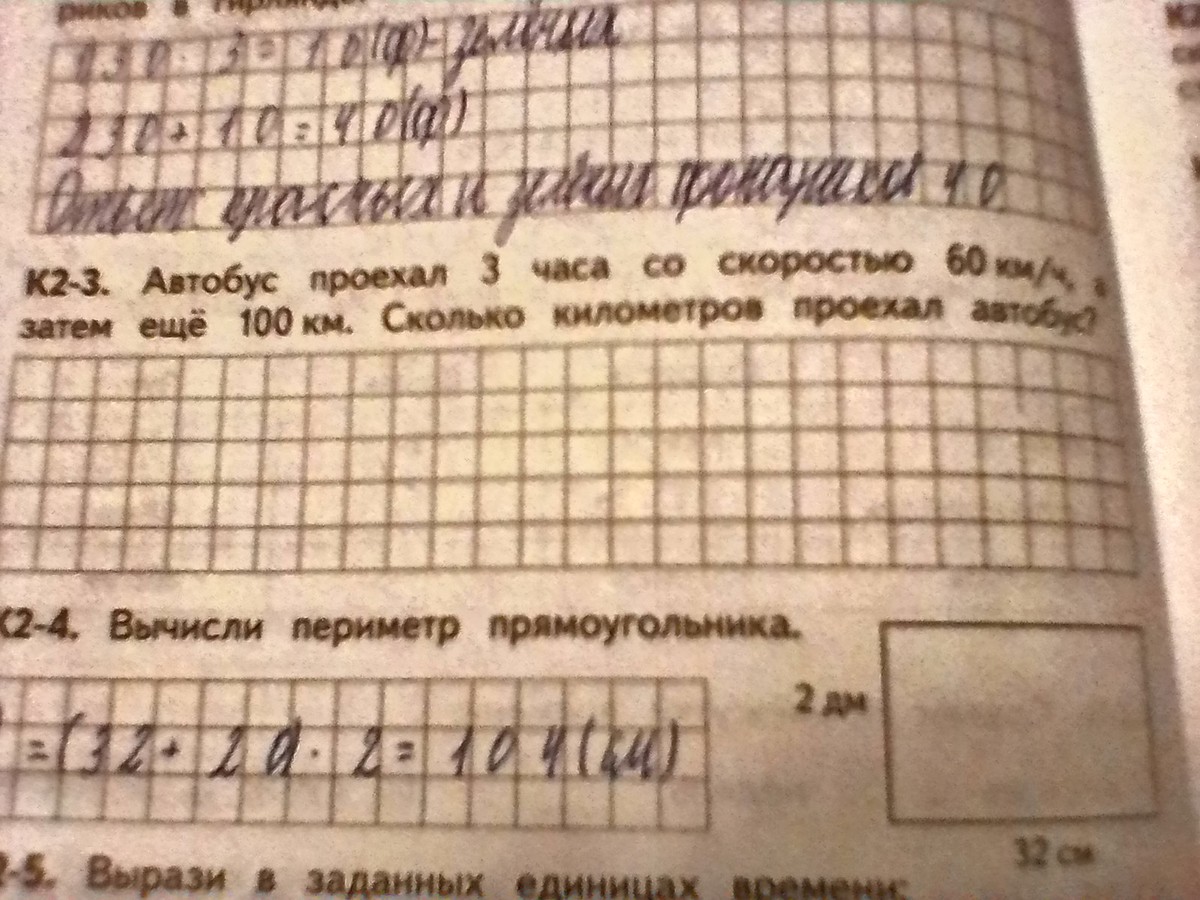 риков в гирлянде?
30 : 3 = 10(ф)-зелёных
2) 30 + 10 = 40(ф)
Ответ: красных и зелёных фонариков 40
К2-3. Автобус проехал 3 часа со скоростью 60 км/ч, а
затем ещё 100 км. Сколько километров проехал автобус?
К2-4. Вычисли периметр прямоугольника.
2 дм
=(32+20)·2=104(см)
32 см
2-5. Вырази в заданных единицах времени: